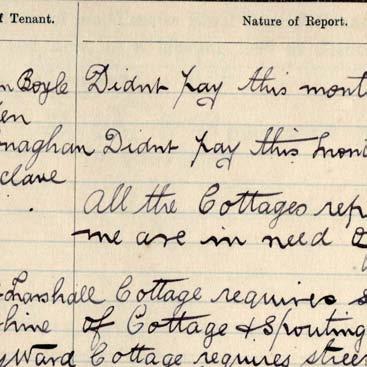 f Tenant. Nature of Report.
n Boyle Didnt pay this mont
en
naghan Didnt pay this mont
clave
. All the Cottages rep
me are in need o
Marshall Cottage requires s
hine of Cottage & Spouting
y Ward Cottage requires stree